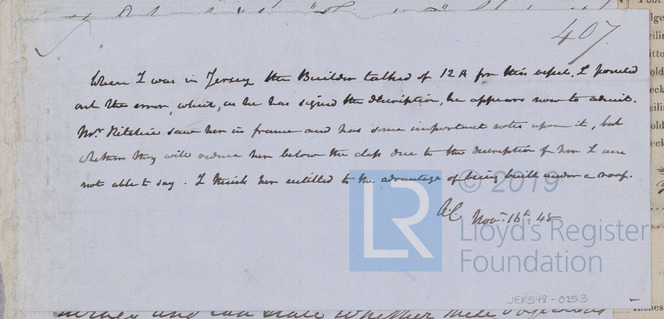 407.
When I was in Jersey the Builder talked of 12 A for this vessel, I pointed
out the error, which, as he has signed the description, he appears now to admit.
Mr. Ritchie saw her in frame and has some important notes upon it, but
whether they will reduce her below the class due to the description of her I am
not able to say. I think her entitled to the advantage of being built under a roof.
Novr. 16th, 48
LR © 2019
Lloyd's Register
Foundation
JERS48-0253
whether these